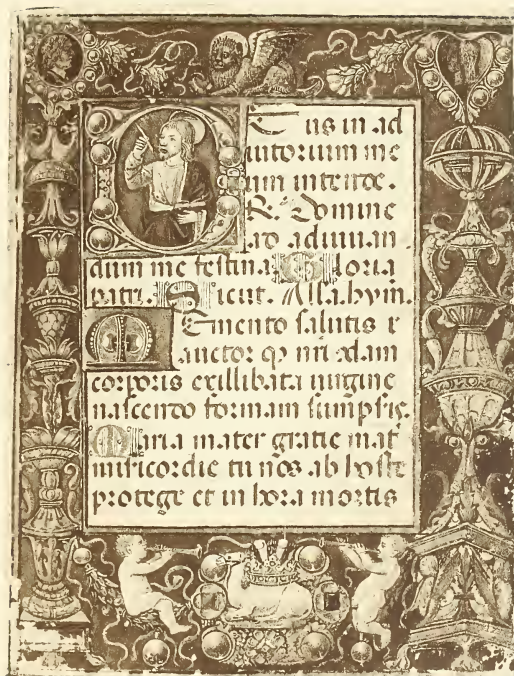 Eus in ad
iutorium me
um intende.
R. Domine
ad adiuuan
dum me festina. Gloria
patri. Sicut. Alla. hym.
Emento salutis
auctor q nri
corporis exillibata uirgine
nascendo formam sumpsis.
Maria mater gratie mat
misicordie tu nos ab hoste
protege et in hora mortis